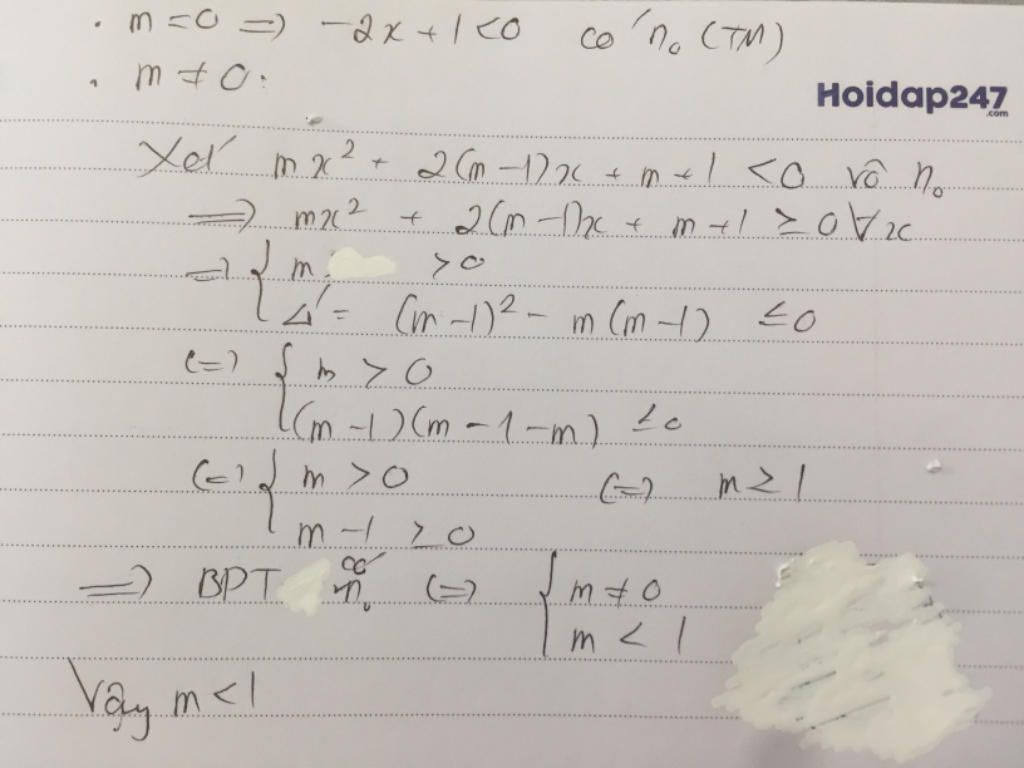 . m = 0 => -2x + 1 < 0 có n₀ (TM)
. m ≠ 0:
Hoidap247
.com
Xét mx² + 2(m-1)x + m + 1 < 0 vô n₀
=> mx² + 2(m-1)x + m + 1 ≥ 0 ∀x
=> { m > 0
Δ' = (m-1)² - m(m-1) ≤ 0
(=) { m > 0
(m-1)(m-1-m) ≤ 0
(=) { m > 0 (=) m ≥ 1
m - 1 ≥ 0
=> BPT có n₀ (=) { m ≠ 0
m < 1
Vậy m < 1